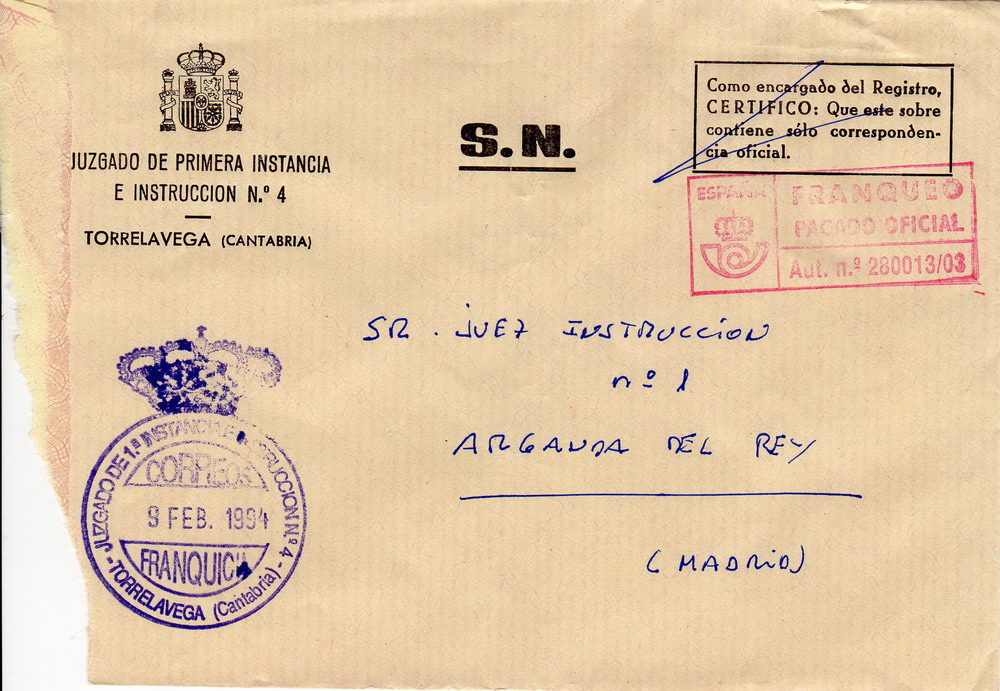 JUZGADO DE PRIMERA INSTANCIA
E INSTRUCCION N.º 4
TORRELAVEGA (CANTABRIA)
S.N.
Como encargado del Registro,
CERTIFICO: Que este sobre
contiene sólo corresponden-
cia oficial.
ESPAÑA
FRANQUEO
PAGADO OFICIAL
Aut. n.º 280013/03
SR. JUEZ INSTRUCCION
nº 1
ARGANDA DEL REY
(MADRID)
JUZGADO DE 1.ª INSTANCIA E INSTRUCCION N.º 4
CORREOS
9 FEB. 1994
FRANQUICIA
- TORRELAVEGA (Cantabria) -